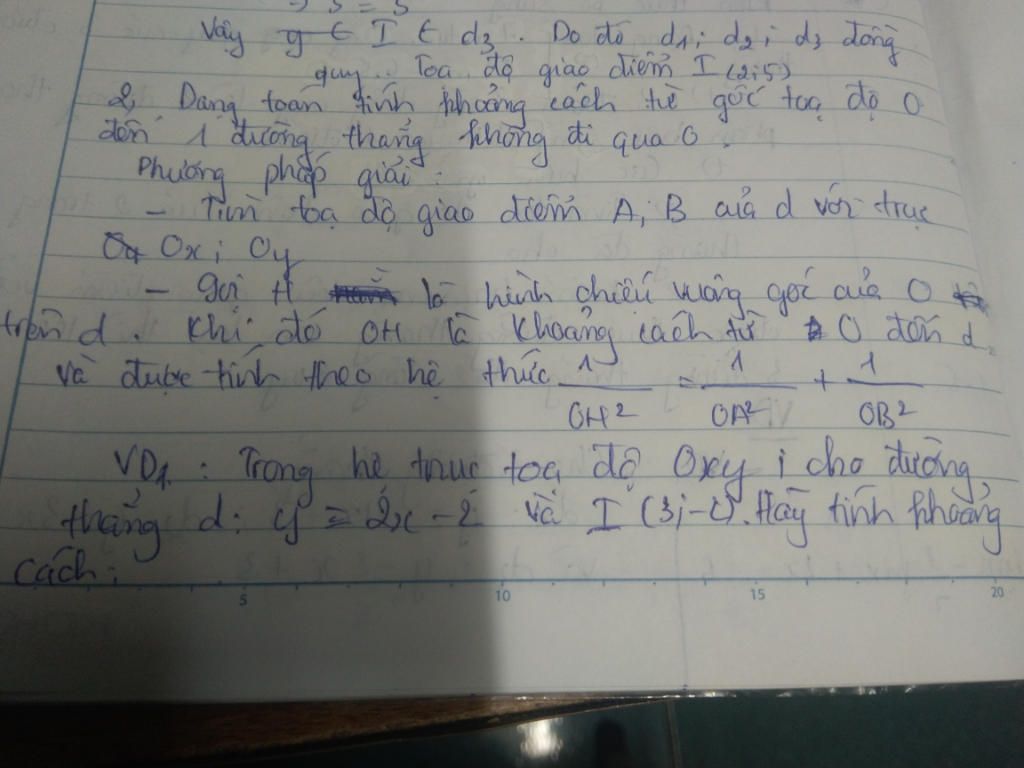 → 5 = 5
Vậy I ∈ d3. Do đó d1; d2; d3 đồng
quy. Toạ độ giao điểm I (2;5)
2, Dạng toán tính khoảng cách từ gốc toạ độ O
đến 1 đường thẳng không đi qua O.
Phương pháp giải:
- Tìm toạ độ giao điểm A, B của d với trục
Ox; Oy
- Gọi H là hình chiếu vuông góc của O
trên d. Khi đó OH là khoảng cách từ O đến d
và được tính theo hệ thức 1/OH² = 1/OA² + 1/OB²
VD1: Trong hệ trục toạ độ Oxy; cho đường
thẳng d: y = 2x - 2 và I (3;-2). Hãy tính khoảng
cách:
5 10 15 20